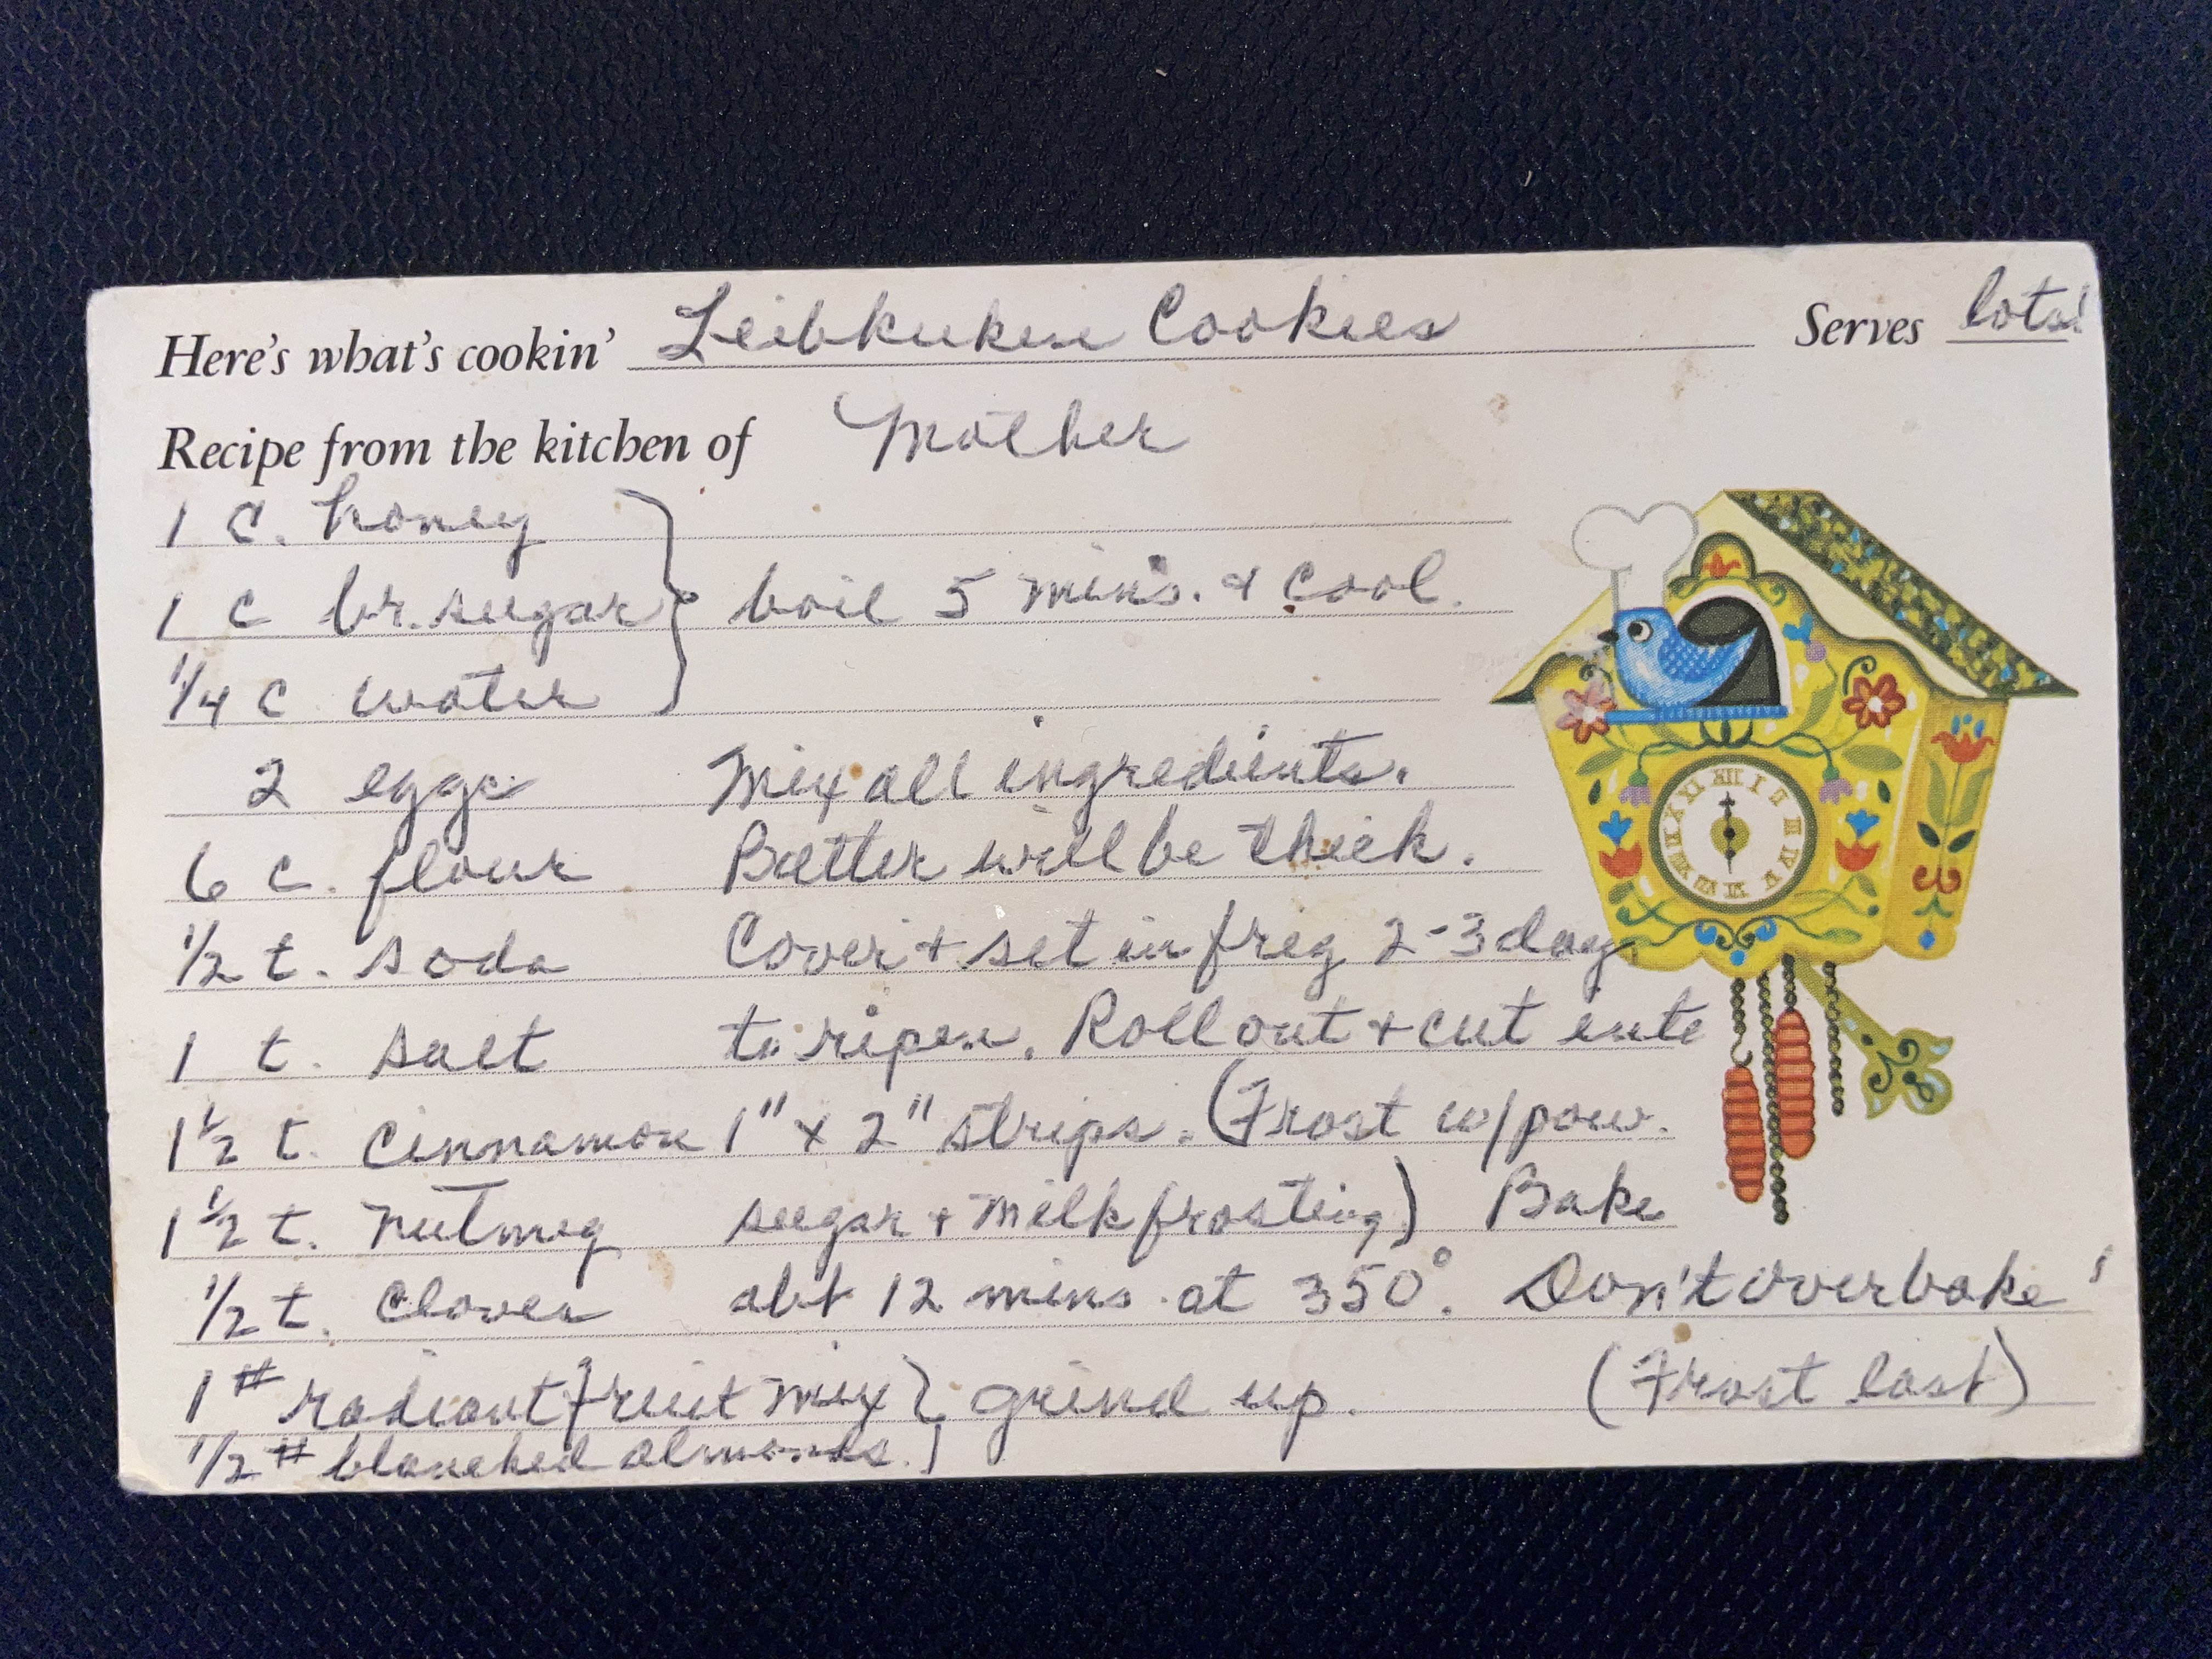 Here's what's cookin' Leibkuken Cookies Serves lots!
Recipe from the kitchen of Mother
1 C. honey
1 C br. sugar } boil 5 mins. & cool.
1/4 C water
2 eggs Mix all ingredients.
6 c. flour Batter will be thick.
1/2 t. soda Cover & set in freg 2-3 day
1 t. salt to ripen. Roll out & cut into
1 1/2 t. cinnamon 1" x 2" strips. (Frost w/pow.
1 1/2 t. nutmeg sugar & milk frosting) Bake
1/2 t. cloves abt 12 mins. at 350°. Don't overbake!
1# radiant fruit mix } grind up. (Frost last)
1/2 # blanched almonds.
XII I II III IV V VI VII VIII IX X XI